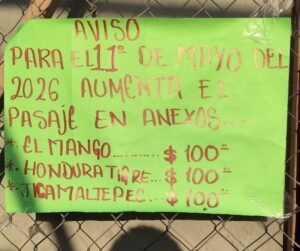 AVISO
PARA EL 11º DE MAYO DEL
2026 AUMENTA EL
PASAJE EN ANEXOS...
*. EL MANGO.......... $ 100
*. HONDURA TIGRE... $ 100
*. JICAMALTEPEC... $ 100